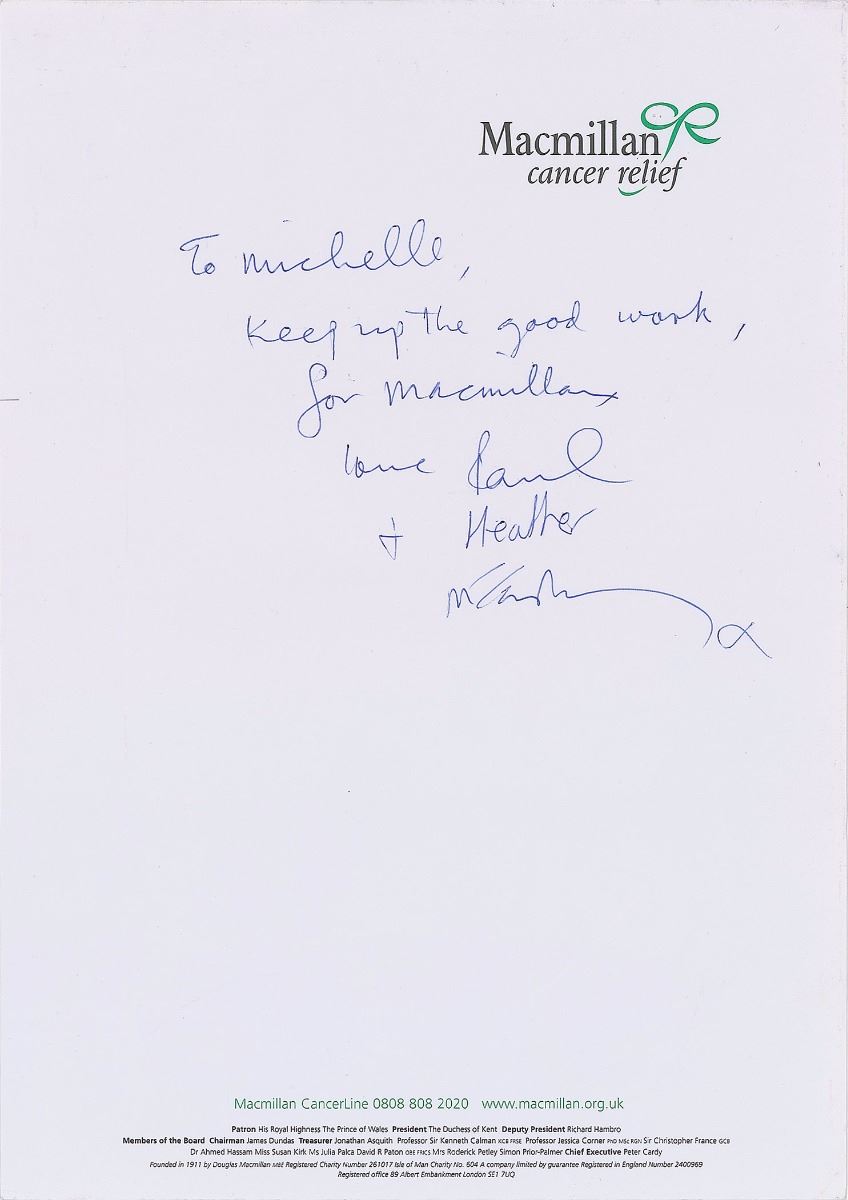 Macmillan
cancer relief
To Michelle,
Keep up the good work,
for Macmillan
love Paul
+ Heather
McCartney x
Macmillan CancerLine 0808 808 2020 www.macmillan.org.uk
Patron His Royal Highness The Prince of Wales President The Duchess of Kent Deputy President Richard Hambro
Members of the Board Chairman James Dundas Treasurer Jonathan Asquith Professor Sir Kenneth Calman KCB FRSE Professor Jessica Corner PhD MSc RGN Sir Christopher France GCB
Dr Ahmed Hassam Miss Susan Kirk Ms Julia Palca David R Paton OBE FRICS Mrs Roderick Petley Simon Prior-Palmer Chief Executive Peter Cardy
Founded in 1911 by Douglas Macmillan MBE Registered Charity Number 261017 Isle of Man Charity No. 604 A company limited by guarantee Registered in England Number 2400969
Registered office 89 Albert Embankment London SE1 7UQ